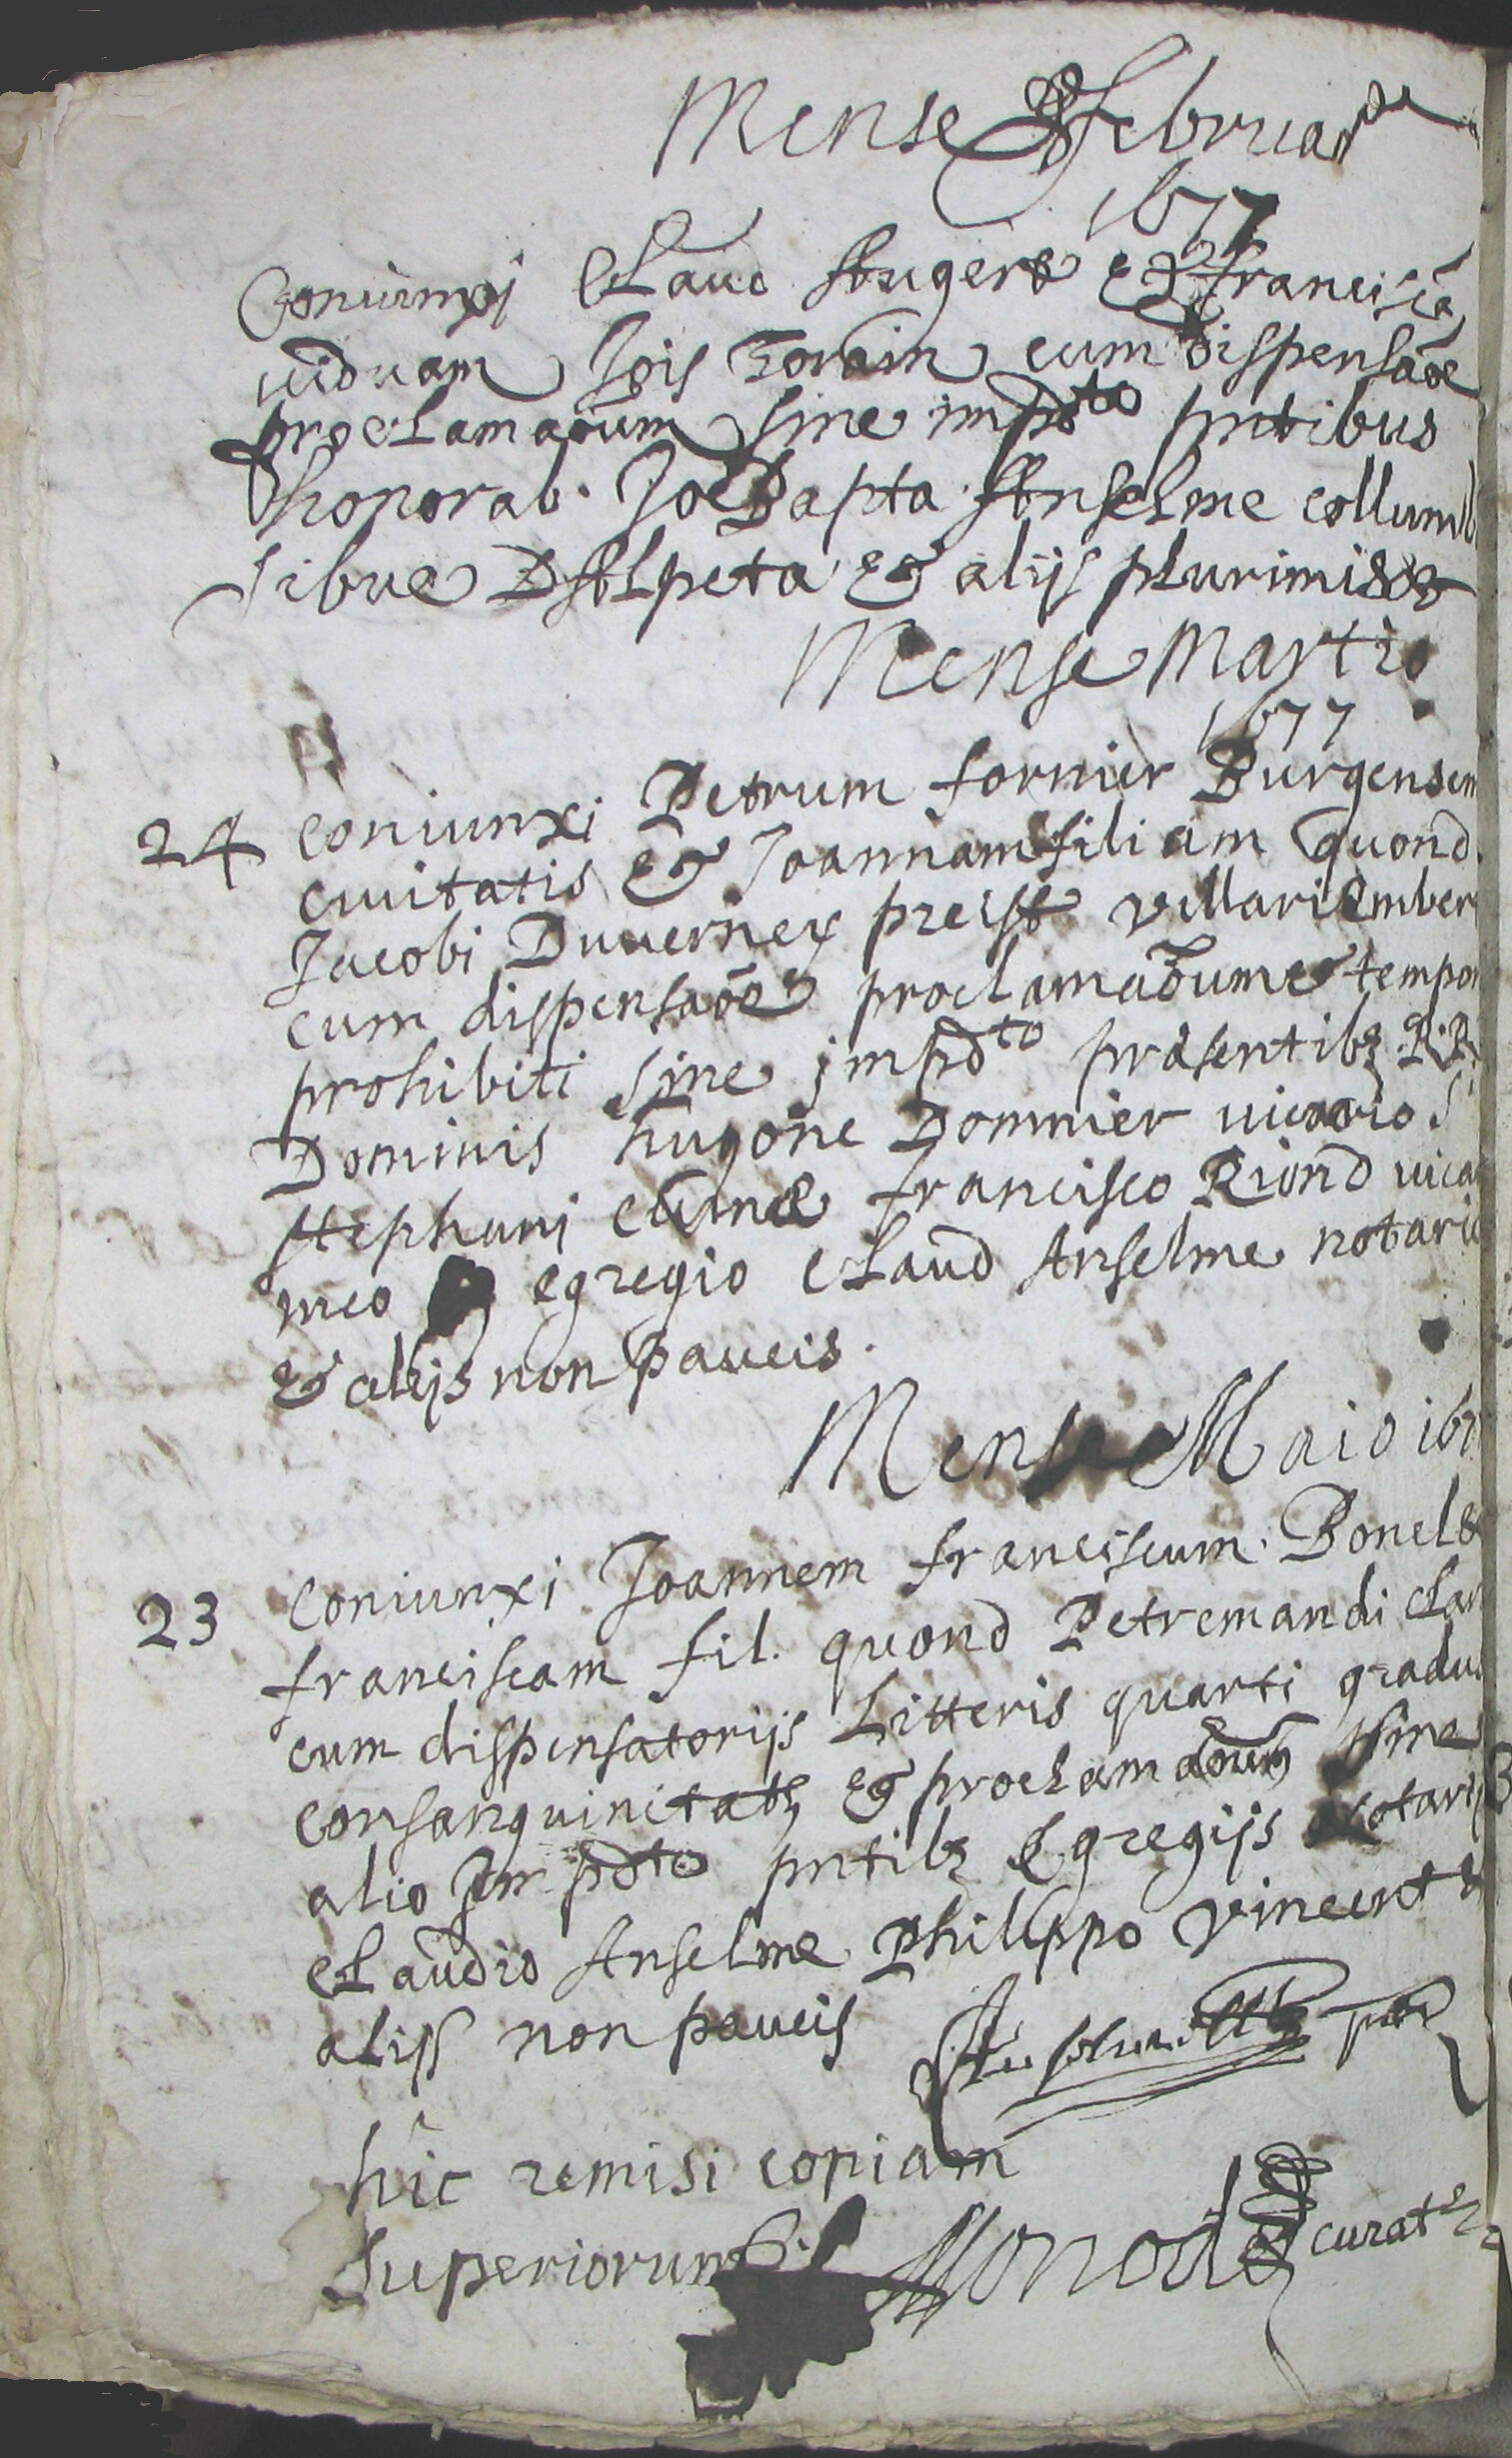 Mense Februar
1677
Coniunxi Claud Augere & francisca
uiduam Jois Torain cum dispensaõe
proclamaõum sine impdto pntibus
honorab. Joe Bapta Anselme collumb
sibue D Alpeta & alijs plurimis
Mense Martio
1677
24 coniunxi Petrum fornier Burgensem
ciuitatis & Joannam filiam quond.
Jacobi Duuerney preist villariember
cum dispensaõe proclamaõum & tempor
prohibiti sine impdto præsentibz R.R.
Dominis hugone Domnier uicario S
stephani cũnæ francisco Riond uica
meo egregio Claud Anselme notario
& alijs non paucis.
Mense Maio 167
23 coniunxi Joannem franciscum Bonel &
franciscam fil. quond Petremandi clar
cum dispensatorijs Litteris quarti gradus
consanguinitatis & proclamaõum sine
alio Impdto pntibz Egregijs Notarijs
Claudio Anselme Philippo Vincent &
alijs non paucis
hic remisi copiam
superiorum Monod curat